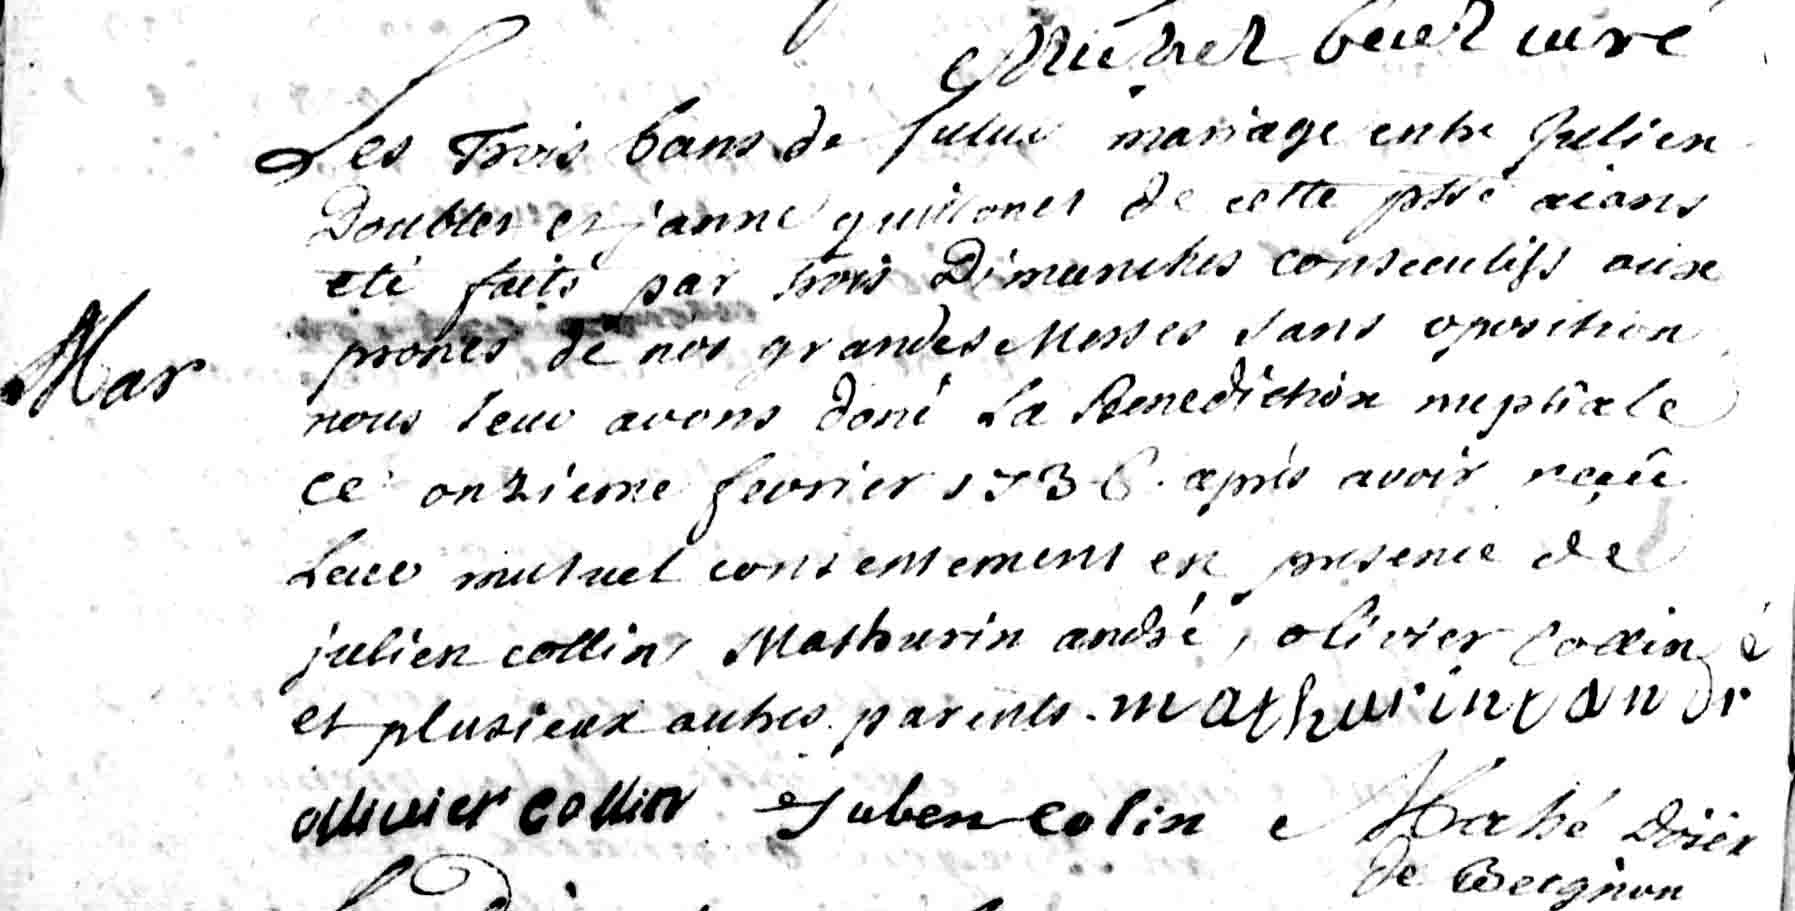 Michel curé
Les Trois bans de futur mariage entre Julien
Doublet et janne guillonet de cette psse aians
eté faits par trois Dimanches consecutifs aux
prones de nos grandes Messes sans oposition
Mar
nous leur avons doné La Benediction nuptiale
ce onzieme fevrier 1736 après avoir reçû
Leur mutuel consentement en presence de
julien collin, Mathurin andré, olivier Collin
et plusieux autres parents. mathurin andre
ollivier collin Julien colin Mahé Doïen
de Beignon